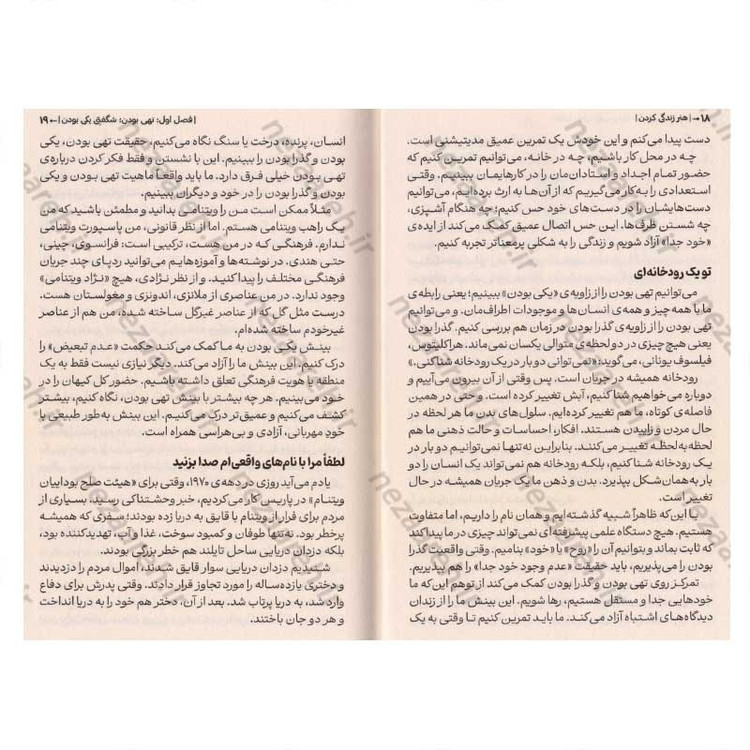 ۱۸ → | هنر زندگی کردن |
دست پیدا می‌کنم و این خودش یک تمرین عمیق مدیتیشنی است.
چه در محل کار باشیم، چه در خانه، می‌توانیم تمرین کنیم که
حضور تمام اجداد و استادان‌مان را در کارهایمان ببینیم. وقتی
استعدادی را به‌کار می‌گیریم که از آن‌ها به ارث برده‌ایم، می‌توانیم
دست‌هایشان را در دست‌های خود حس کنیم؛ چه هنگام آشپزی،
چه شستن ظرف‌ها. این حس اتصال عمیق کمک می‌کند از ایده‌ی
«خود جدا» آزاد شویم و زندگی را به شکلی پرمعناتر تجربه کنیم.
تو یک رودخانه‌ای
می‌توانیم تهی بودن را از زاویه‌ی «یکی بودن» ببینیم؛ یعنی رابطه‌ی
ما با همه چیز و همه‌ی انسان‌ها و موجودات اطراف‌مان. و می‌توانیم
تهی بودن را از زاویه‌ی گذرا بودن در زمان هم بررسی کنیم. گذرا بودن
یعنی هیچ چیزی در دو لحظه‌ی متوالی یکسان نمی‌ماند. هراکلیتوس،
فیلسوف یونانی، می‌گوید: «نمی‌توانی دو بار در یک رودخانه شنا کنی.»
رودخانه همیشه در جریان است. پس وقتی از آن بیرون می‌آییم و
دوباره می‌خواهیم شنا کنیم، آبش تغییر کرده است. و حتی در همین
فاصله‌ی کوتاه، ما هم تغییر کرده‌ایم. سلول‌های بدن ما هر لحظه در
حال مردن و زاییدن هستند. افکار، احساسات و حالت ذهنی ما هم
لحظه‌به‌لحظه تغییر می‌کنند. بنابراین نه‌تنها نمی‌توانیم دو بار در
یک رودخانه شنا کنیم، بلکه رودخانه هم نمی‌تواند یک انسان را دو
بار به همان شکل بپذیرد. بدن و ذهن ما یک جریان همیشه در حال
تغییر است.
با این‌که ظاهراً شبیه گذشته‌ایم و همان نام را داریم، اما متفاوت
هستیم. هیچ دستگاه علمی پیشرفته‌ای نمی‌تواند چیزی در ما پیدا کند
که ثابت بماند و بتوانیم آن را «روح» یا «خود» بنامیم. وقتی واقعیت گذرا
بودن را می‌پذیریم، باید حقیقت «عدم وجود خود جدا» را هم بپذیریم.
تمرکز روی تهی بودن و گذرا بودن کمک می‌کند از توهم این‌که ما
خودهایی جدا و مستقل هستیم، رها شویم. این بینش ما را از زندان
دیدگاه‌های اشتباه آزاد می‌کند. ما باید تمرین کنیم تا وقتی به یک
| فصل اول: تهی بودن؛ شگفتی یکی بودن | ← ۱۹
انسان، پرنده، درخت یا سنگ نگاه می‌کنیم، حقیقت تهی بودن، یکی
بودن و گذرا بودن را ببینیم. این با نشستن و فقط فکر کردن درباره‌ی
تهی بودن خیلی فرق دارد. ما باید واقعاً ماهیت تهی بودن و یکی
بودن و گذرا بودن را در خود و دیگران ببینیم.
مثلاً ممکن است من را ویتنامی بدانید و مطمئن باشید که من
یک راهب ویتنامی هستم. اما از نظر قانونی، من پاسپورت ویتنامی
ندارم. فرهنگی که در من هست، ترکیبی است: فرانسوی، چینی،
حتی هندی. در نوشته‌ها و آموزه‌هایم می‌توانید ردپای چند جریان
فرهنگی مختلف را پیدا کنید. و از نظر نژادی، هیچ «نژاد ویتنامی»
وجود ندارد. در من عناصری از ملانزی، اندونزی و مغولستان هست.
درست مثل گل که از عناصر غیرگل ساخته شده، من هم از عناصر
غیرخودم ساخته شده‌ام.
بینش یکی بودن به ما کمک می‌کند حکمت «عدم تبعیض» را
درک کنیم. این بینش ما را آزاد می‌کند. دیگر نیازی نیست فقط به یک
منطقه یا هویت فرهنگی تعلق داشته باشیم. حضور کل کیهان را در
خود می‌بینیم. هر چه بیشتر با بینش تهی بودن، نگاه کنیم، بیشتر
کشف می‌کنیم و عمیق‌تر درک می‌کنیم. این بینش به‌طور طبیعی با
خود مهربانی، آزادی و بی‌هراسی همراه است.
لطفاً مرا با نام‌های واقعی‌ام صدا بزنید
یادم می‌آید روزی در دهه‌ی ۱۹۷۰، وقتی برای «هیئت صلح بوداییان
ویتنام» در پاریس کار می‌کردیم، خبر وحشتناکی رسید. بسیاری از
مردم برای فرار از ویتنام با قایق به دریا زده بودند؛ سفری که همیشه
پرخطر بود. نه‌تنها طوفان و کمبود سوخت، غذا و آب، تهدیدکننده بود،
بلکه دزدان دریایی ساحل تایلند هم خطر بزرگی بودند.
شنیدیم دزدان دریایی سوار قایق شدند، اموال مردم را دزدیدند
و دختری یازده‌ساله را مورد تجاوز قرار دادند. وقتی پدرش برای دفاع
وارد شد، به دریا پرتاب شد. بعد از آن، دختر هم خود را به دریا انداخت
و هر دو جان باختند.